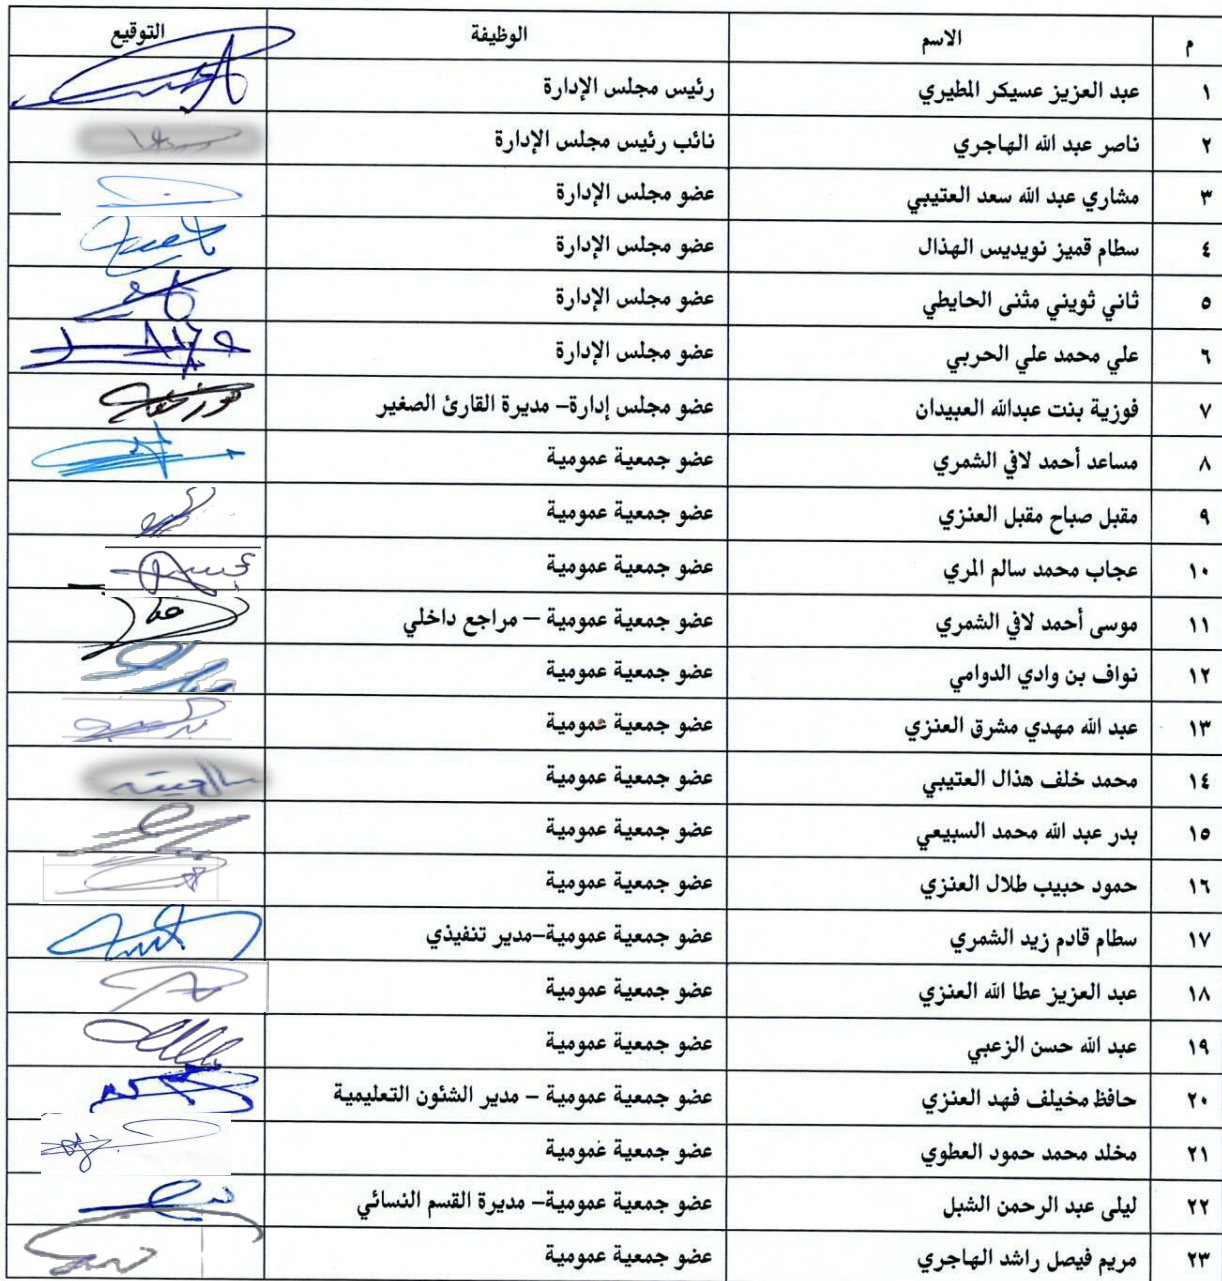 م الاسم الوظيفة التوقيع
١ عبد العزيز عسيكر المطيري رئيس مجلس الإدارة
٢ ناصر عبد الله الهاجري نائب رئيس مجلس الإدارة
٣ مشاري عبد الله سعد العتيبي عضو مجلس الإدارة
٤ سطام قميز نويديس الهذال عضو مجلس الإدارة
٥ ثاني ثويني مثنى الحايطي عضو مجلس الإدارة
٦ علي محمد علي الحربي عضو مجلس الإدارة
٧ فوزية بنت عبدالله العبيدان عضو مجلس إدارة– مديرة القارئ الصغير
٨ مساعد أحمد لافي الشمري عضو جمعية عمومية
٩ مقبل صباح مقبل العنزي عضو جمعية عمومية
١٠ عجاب محمد سالم المري عضو جمعية عمومية
١١ موسى أحمد لافي الشمري عضو جمعية عمومية – مراجع داخلي
١٢ نواف بن وادي الدوامي عضو جمعية عمومية
١٣ عبد الله مهدي مشرق العنزي عضو جمعية عمومية
١٤ محمد خلف هذال العتيبي عضو جمعية عمومية
١٥ بدر عبد الله محمد السبيعي عضو جمعية عمومية
١٦ حمود حبيب طلال العنزي عضو جمعية عمومية
١٧ سطام قادم زيد الشمري عضو جمعية عمومية–مدير تنفيذي
١٨ عبد العزيز عطا الله العنزي عضو جمعية عمومية
١٩ عبد الله حسن الزعبي عضو جمعية عمومية
٢٠ حافظ مخيلف فهد العنزي عضو جمعية عمومية – مدير الشئون التعليمية
٢١ مخلد محمد حمود العطوي عضو جمعية عمومية
٢٢ ليلى عبد الرحمن الشبل عضو جمعية عمومية– مديرة القسم النسائي
٢٣ مريم فيصل راشد الهاجري عضو جمعية عمومية